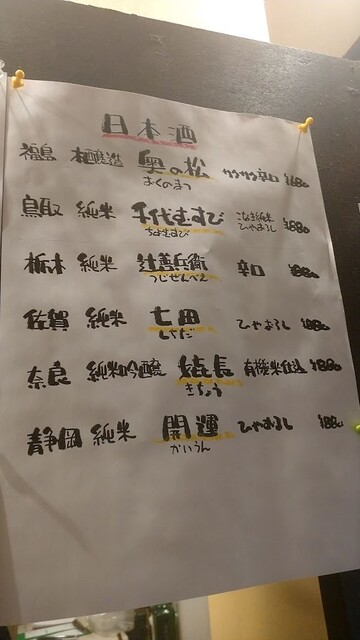 日本酒
福島 本醸造 奥の松 サクサク辛口 ¥680
おくのまつ
鳥取 純米 千代むすび こなき純米 ひやおろし ¥880
ちよむすび
栃木 純米 辻善兵衛 辛口 ¥880
つじぜんべえ
佐賀 純米 七田 ひやおろし ¥880
しちだ
奈良 純米吟醸 嬉長 有機米仕込 ¥880
きちょう
静岡 純米 開運 ひやおろし ¥880
かいうん